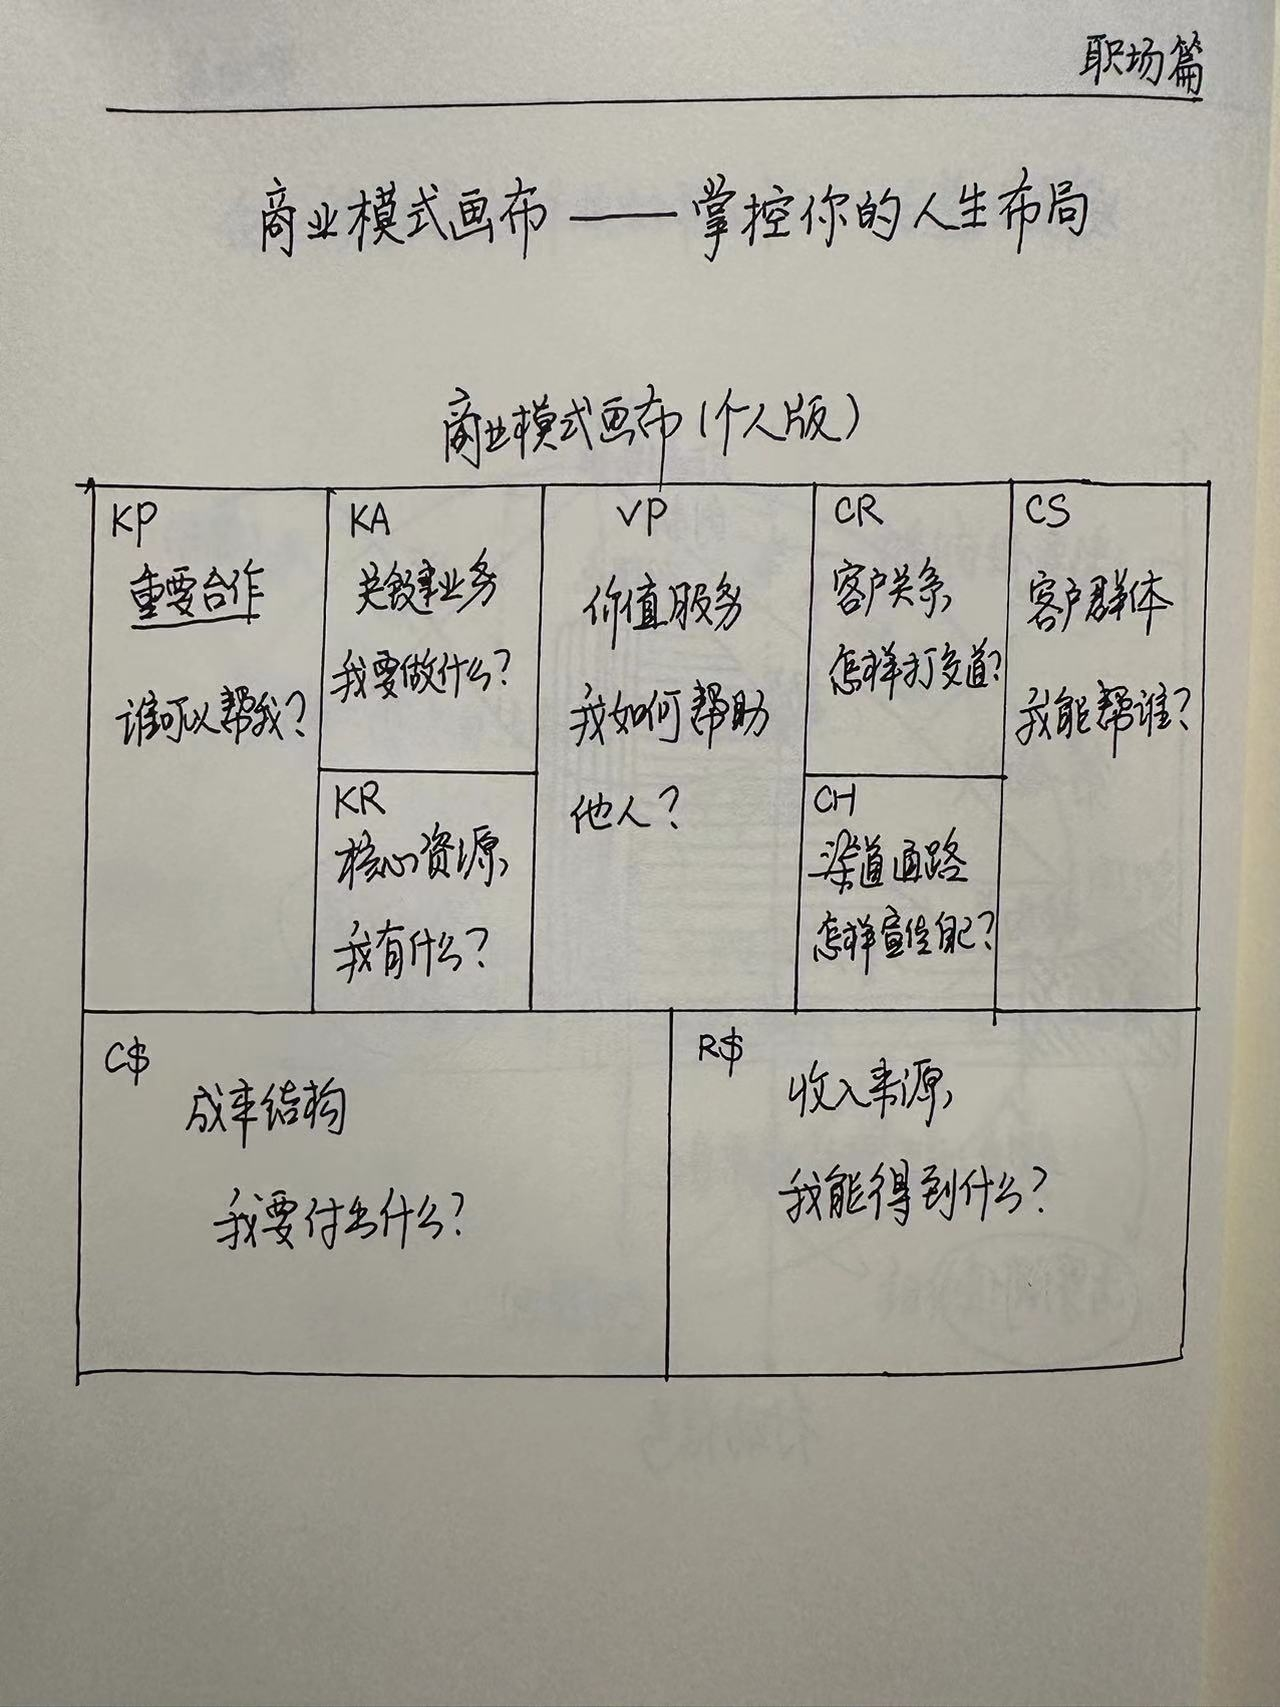 职场篇
商业模式画布——掌控你的人生布局
商业模式画布(个人版)
KP
重要合作
谁可以帮我?
KA
关键业务
我要做什么?
KR
核心资源
我有什么?
VP
价值服务
我如何帮助
他人?
CR
客户关系
怎样打交道?
CH
渠道通路
怎样宣传自己?
CS
客户群体
我能帮谁?
C$
成本结构
我要付出什么?
R$
收入来源
我能得到什么?